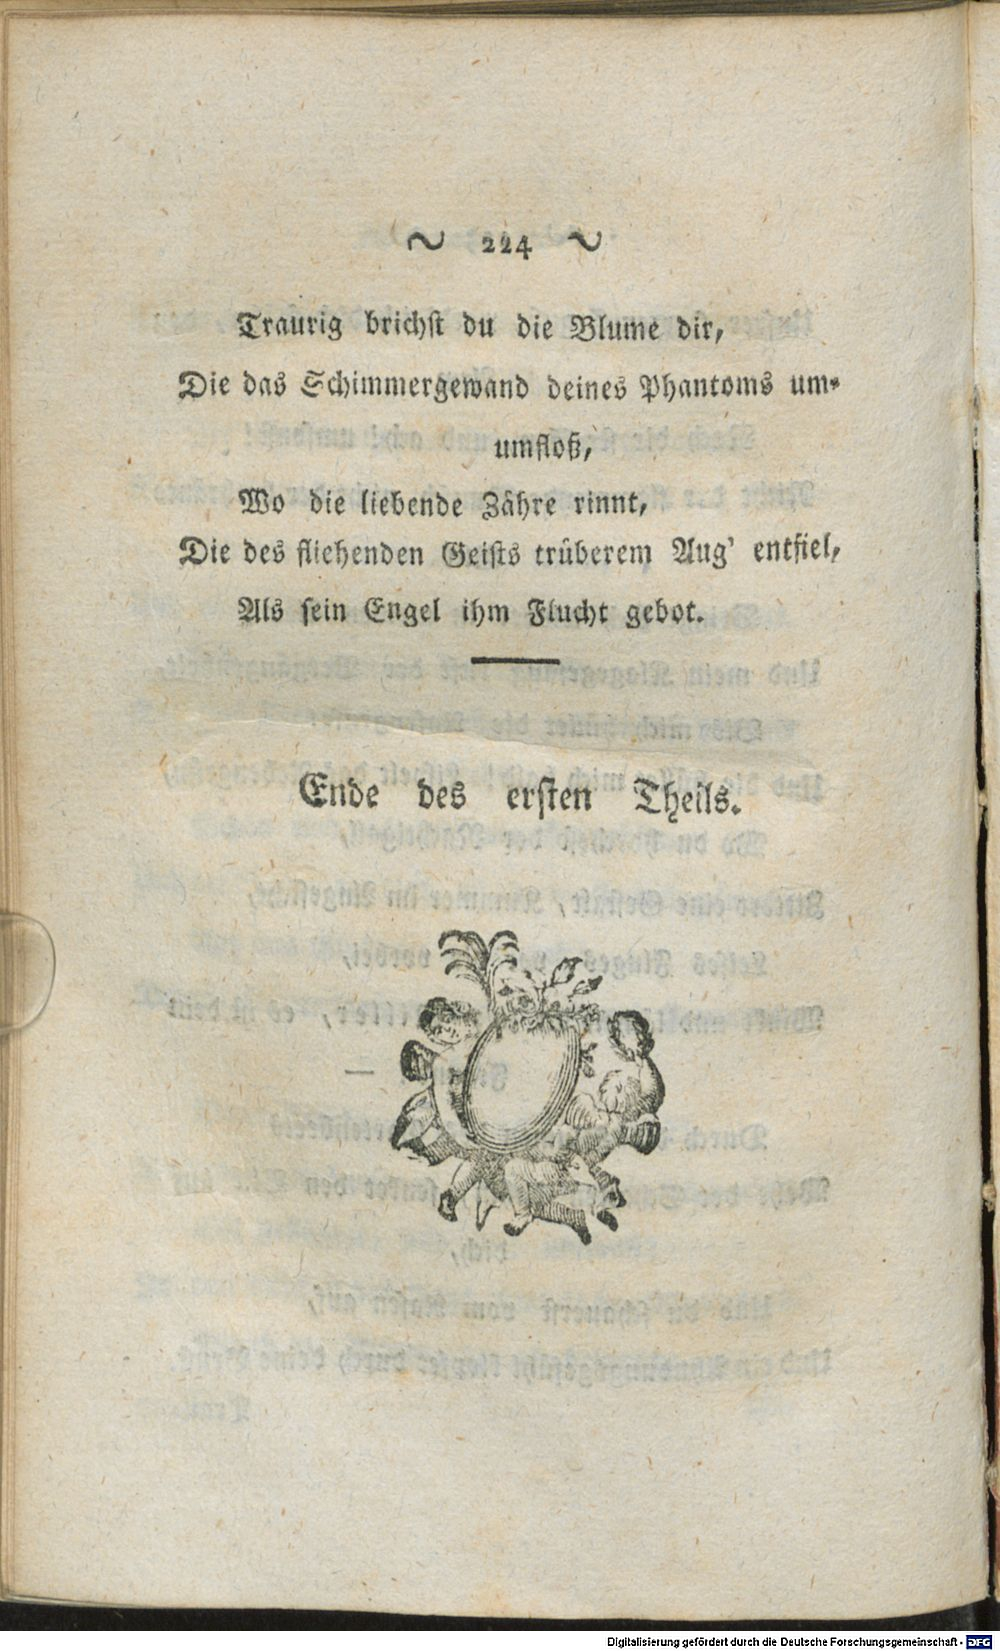 ~ 224 ~
Traurig brichst du die Blume dir,
Die das Schimmergewand deines Phantoms um-
umfloß,
Wo die liebende Zähre rinnt,
Die des fliehenden Geists trüberem Aug' entfiel,
Als sein Engel ihm Flucht gebot.
Ende des ersten Theils.
Digitalisierung gefördert durch die Deutsche Forschungsgemeinschaft - DFG